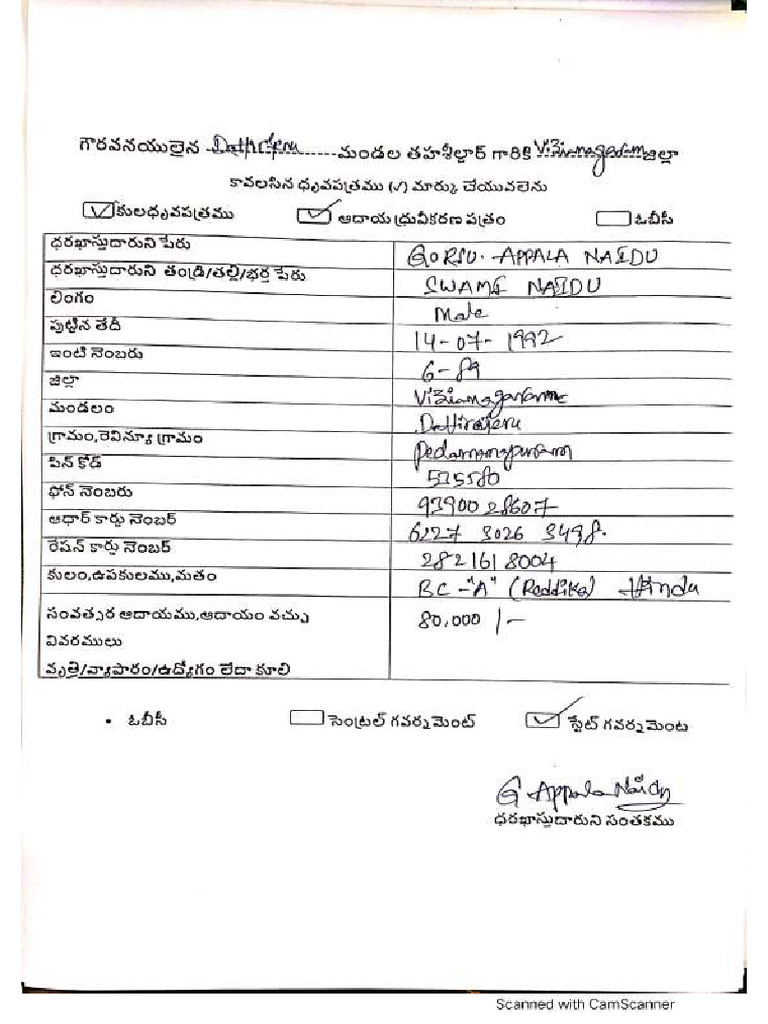 గౌరవనయులైన Dathirjeru మండల తహశీల్దార్ గారికి Vizianagaram జిల్లా
కావలసిన ధృవపత్రము (✓) మార్కు చేయువలెను
☑ కులధృవపత్రము ☑ ఆదాయ ధ్రువీకరణ పత్రం ☐ ఓబీసీ
ధరఖాస్తుదారుని పేరు GORSU. APPALA NAIDU
ధరఖాస్తుదారుని తండ్రి/తల్లి/భర్త పేరు SWAMI NAIDU
లింగం Male
పుట్టిన తేదీ 14-07-1992
ఇంటి నెంబరు 6-89
జిల్లా Vizianagaram
మండలం Dattirajeru
గ్రామం,రెవిన్యూ గ్రామం Pedamanapuram
పిన్ కోడ్ 535580
ఫోన్ నెంబరు 93900 28607
ఆధార్ కార్డు నెంబర్ 6227 3026 3498.
రేషన్ కార్డు నెంబర్ 2821618004
కులం,ఉపకులము,మతం BC-"A" (Reddika) Hindu
సంవత్సర ఆదాయము,ఆదాయం వచ్చు 80,000/-
వివరములు
వృత్తి/వ్యాపారం/ఉద్యోగం లేదా కూలి
• ఓబీసీ ☐ సెంట్రల్ గవర్నమెంట్ ☑ స్టేట్ గవర్నమెంట
G Appala Naidu
ధరఖాస్తుదారుని సంతకము
Scanned with CamScanner